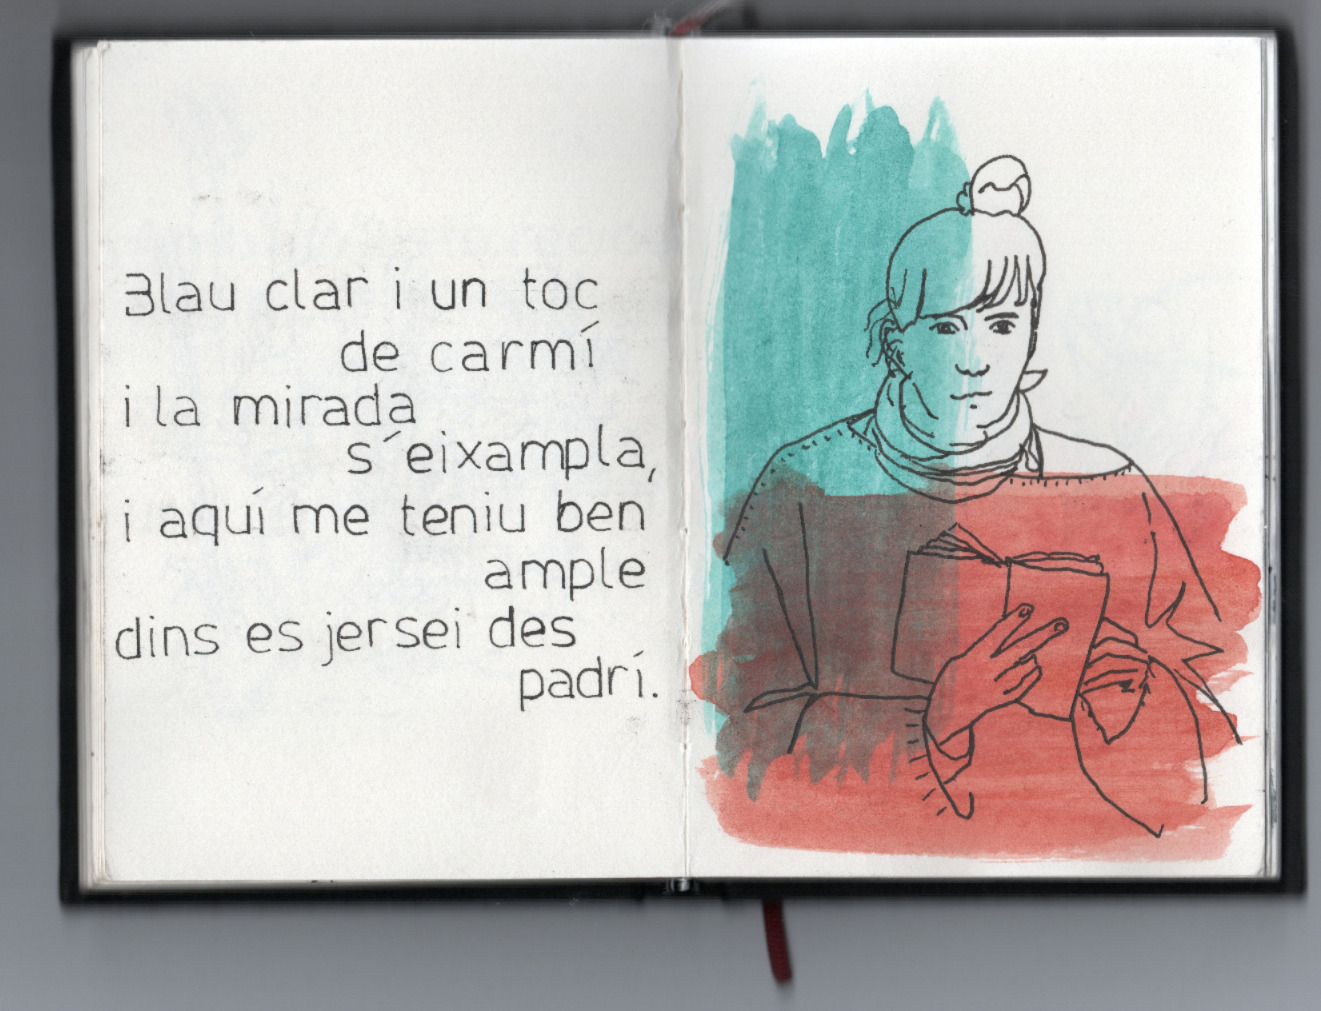 Blau clar i un toc
de carmí
i la mirada
s'eixampla,
i aquí me teniu ben
ample
dins es jersei des
padrí.